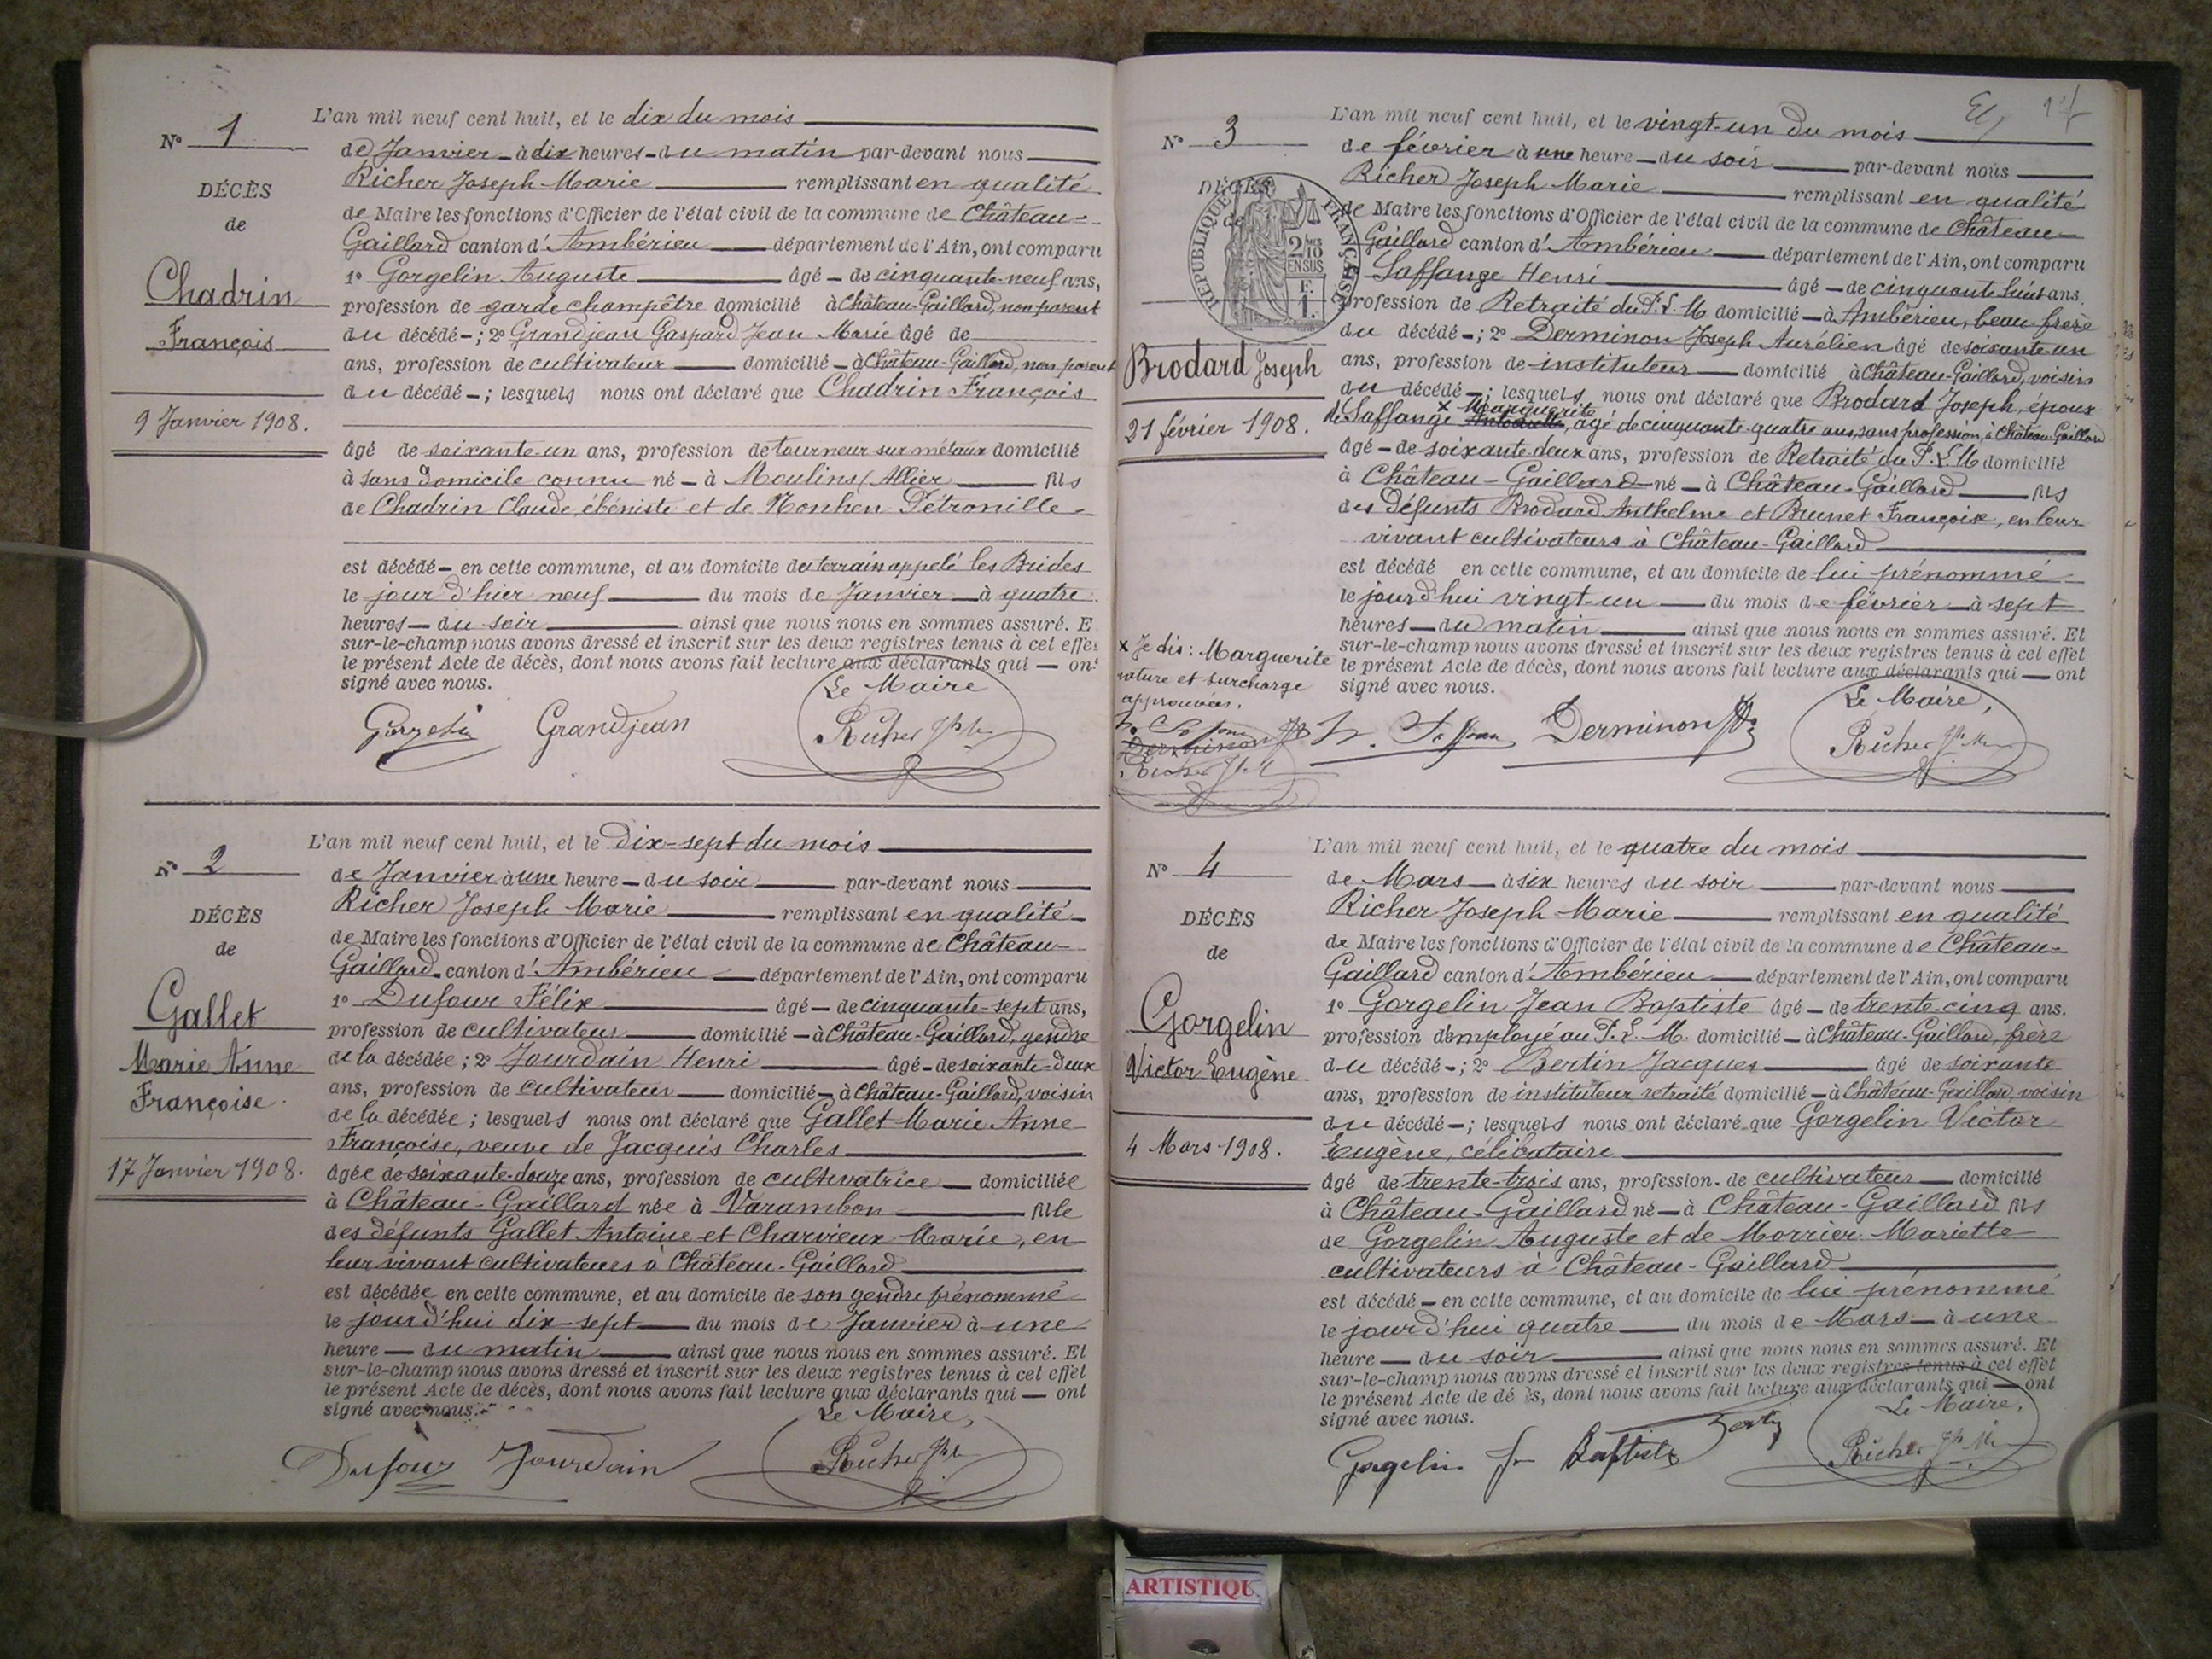 L'an mil neuf cent huit, et le dix du mois
N° 1
de Janvier à dix heures du matin par-devant nous
Richer Joseph Marie remplissant en qualité
DÉCÈS
de Maire les fonctions d'Officier de l'état civil de la commune de Château-
de
Gaillard canton d'Ambérieu département de l'Ain, ont comparu
1° Gorgelin Auguste âgé de cinquante-neuf ans,
Chadrin
profession de garde champêtre domicilié à Château-Gaillard, non parent
François
du décédé ; 2° Grandjean Gaspard Jean Marie âgé de
ans, profession de cultivateur domicilié à Château-Gaillard, non parent
du décédé ; lesquels nous ont déclaré que Chadrin François
9 Janvier 1908.
âgé de soixante-un ans, profession de tourneur sur métaux domicilié
à sans domicile connu né à Moulins (Allier fils
de Chadrin Claude, ébéniste et de Nonhen Pétronille
est décédé en cette commune, et au domicile du terrain appelé les Brides
le jour d'hier neuf du mois de Janvier à quatre
heures du soir ainsi que nous nous en sommes assuré. E
sur-le-champ nous avons dressé et inscrit sur les deux registres tenus à cet effet
le présent Acte de décès, dont nous avons fait lecture aux déclarants qui ont
signé avec nous.
Le Maire
Gorgelin Grandjean Richer Jph
L'an mil neuf cent huit, et le Dix-sept du mois
N° 2
de Janvier à une heure du soir par-devant nous
Richer Joseph Marie remplissant en qualité
DÉCÈS
de Maire les fonctions d'Officier de l'état civil de la commune de Château-
de
Gaillard canton d'Ambérieu département de l'Ain, ont comparu
1° Dufour Félix âgé de cinquante-sept ans,
Gallet
profession de cultivateur domicilié à Château-Gaillard, gendre
Marie Anne
de la décédée ; 2° Jourdain Henri âgé de soixante-deux
Françoise.
ans, profession de cultivateur domicilié à Château-Gaillard, voisin
de la décédée ; lesquels nous ont déclaré que Gallet Marie Anne
Françoise, veuve de Jacquis Charles
17 Janvier 1908.
âgée de soixante-douze ans, profession de cultivatrice domiciliée
à Château-Gaillard née à Varambon fille
des défunts Gallet Antoine et Charvieux Marie, en
leur vivant cultivateurs à Château-Gaillard
est décédée en cette commune, et au domicile de son gendre prénommé
le jourd'hui dix-sept du mois de Janvier à une
heure du matin ainsi que nous nous en sommes assuré. Et
sur-le-champ nous avons dressé et inscrit sur les deux registres tenus à cet effet
le présent Acte de décès, dont nous avons fait lecture aux déclarants qui ont
signé avec nous.
Le Maire,
Dufour Jourdain Richer Jph
L'an mil neuf cent huit, et le vingt-un du mois
N° 3
de février à une heure du soir par-devant nous
Richer Joseph Marie remplissant en qualité
DÉCÈS
de
RÉPUBLIQUE FRANÇAISE
2/10 EN SUS
F. 1.
de Maire les fonctions d'Officier de l'état civil de la commune de Château-
Gaillard canton d'Ambérieu département de l'Ain, ont comparu
Laffange Henri âgé de cinquante huit ans.
profession de Retraité du P.L.M domicilié à Ambérieu, beau-frère
du décédé ; 2° Derminon Joseph Aurélien âgé de soixante-un
Brodard Joseph
ans, profession de instituteur domicilié à Château-Gaillard, voisin
du décédé ; lesquels nous ont déclaré que Brodard Joseph, époux
x Marguerite
de Laffange Antoinette, âgé de cinquante-quatre ans, sans profession, à Château-Gaillard
21 février 1908.
âgé de soixante-deux ans, profession de Retraité du P.L.M domicilié
à Château-Gaillard né à Château-Gaillard fils
des défunts Brodard Anthelme et Brunet Françoise, en leur
vivant cultivateurs à Château-Gaillard
est décédé en cette commune, et au domicile de lui prénommé
le jourd'hui vingt-un du mois de février à sept
heures du matin ainsi que nous nous en sommes assuré. Et
sur-le-champ nous avons dressé et inscrit sur les deux registres tenus à cet effet
le présent Acte de décès, dont nous avons fait lecture aux déclarants qui ont
signé avec nous.
x Je dis : Marguerite
rature et surcharge
approuvées.
Derminon
Richer Jph M
Le Maire,
Derminon Richer Jph M
L'an mil neuf cent huit, et le quatre du mois
N° 4
de Mars à six heures du soir par-devant nous
Richer Joseph Marie remplissant en qualité
DÉCÈS
de Maire les fonctions d'Officier de l'état civil de la commune de Château-
de
Gaillard canton d'Ambérieu département de l'Ain, ont comparu
1° Gorgelin Jean Baptiste âgé de trente-cinq ans.
Gorgelin
profession d'employé au P.L.M. domicilié à Château-Gaillard, frère
Victor Eugène
du décédé ; 2° Bertin Jacques âgé de soixante
ans, profession de instituteur retraité domicilié à Château-Gaillard, voisin
du décédé ; lesquels nous ont déclaré que Gorgelin Victor
4 Mars 1908.
Eugène, célibataire
âgé de trente-trois ans, profession de cultivateur domicilié
à Château-Gaillard né à Château-Gaillard fils
de Gorgelin Auguste et de Morrier Mariette
cultivateurs à Château-Gaillard
est décédé en cette commune, et au domicile de lui prénommé
le jourd'hui quatre du mois de Mars à une
heure du soir ainsi que nous nous en sommes assuré. Et
sur-le-champ nous avons dressé et inscrit sur les deux registres tenus à cet effet
le présent Acte de dé ès, dont nous avons fait lecture aux déclarants qui ont
signé avec nous.
Le Maire,
Gorgelin Jn Baptiste Bertin Richer Jph M
ARTISTIQU